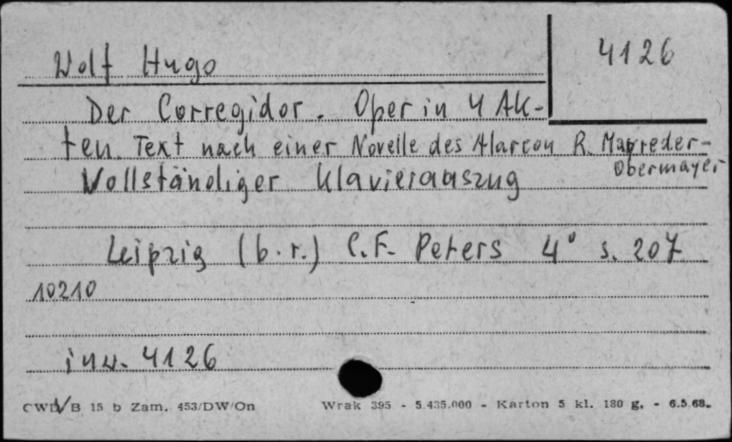 4126
Wolf Hugo
Der Corregidor. Oper in 4 Ak-
ten. Text nach einer Novelle des Alarcon R. Mayreder-
Obermayer
Vollständiger Klavierauszug
Leipzig (b.r.) C.F. Peters 4° s. 207
10210
inw. 4126
CWD/B 15 b Zam. 453/DW/On Wrak 395 - 5.435.000 - Karton 5 kl. 180 g. - 6.5.68.